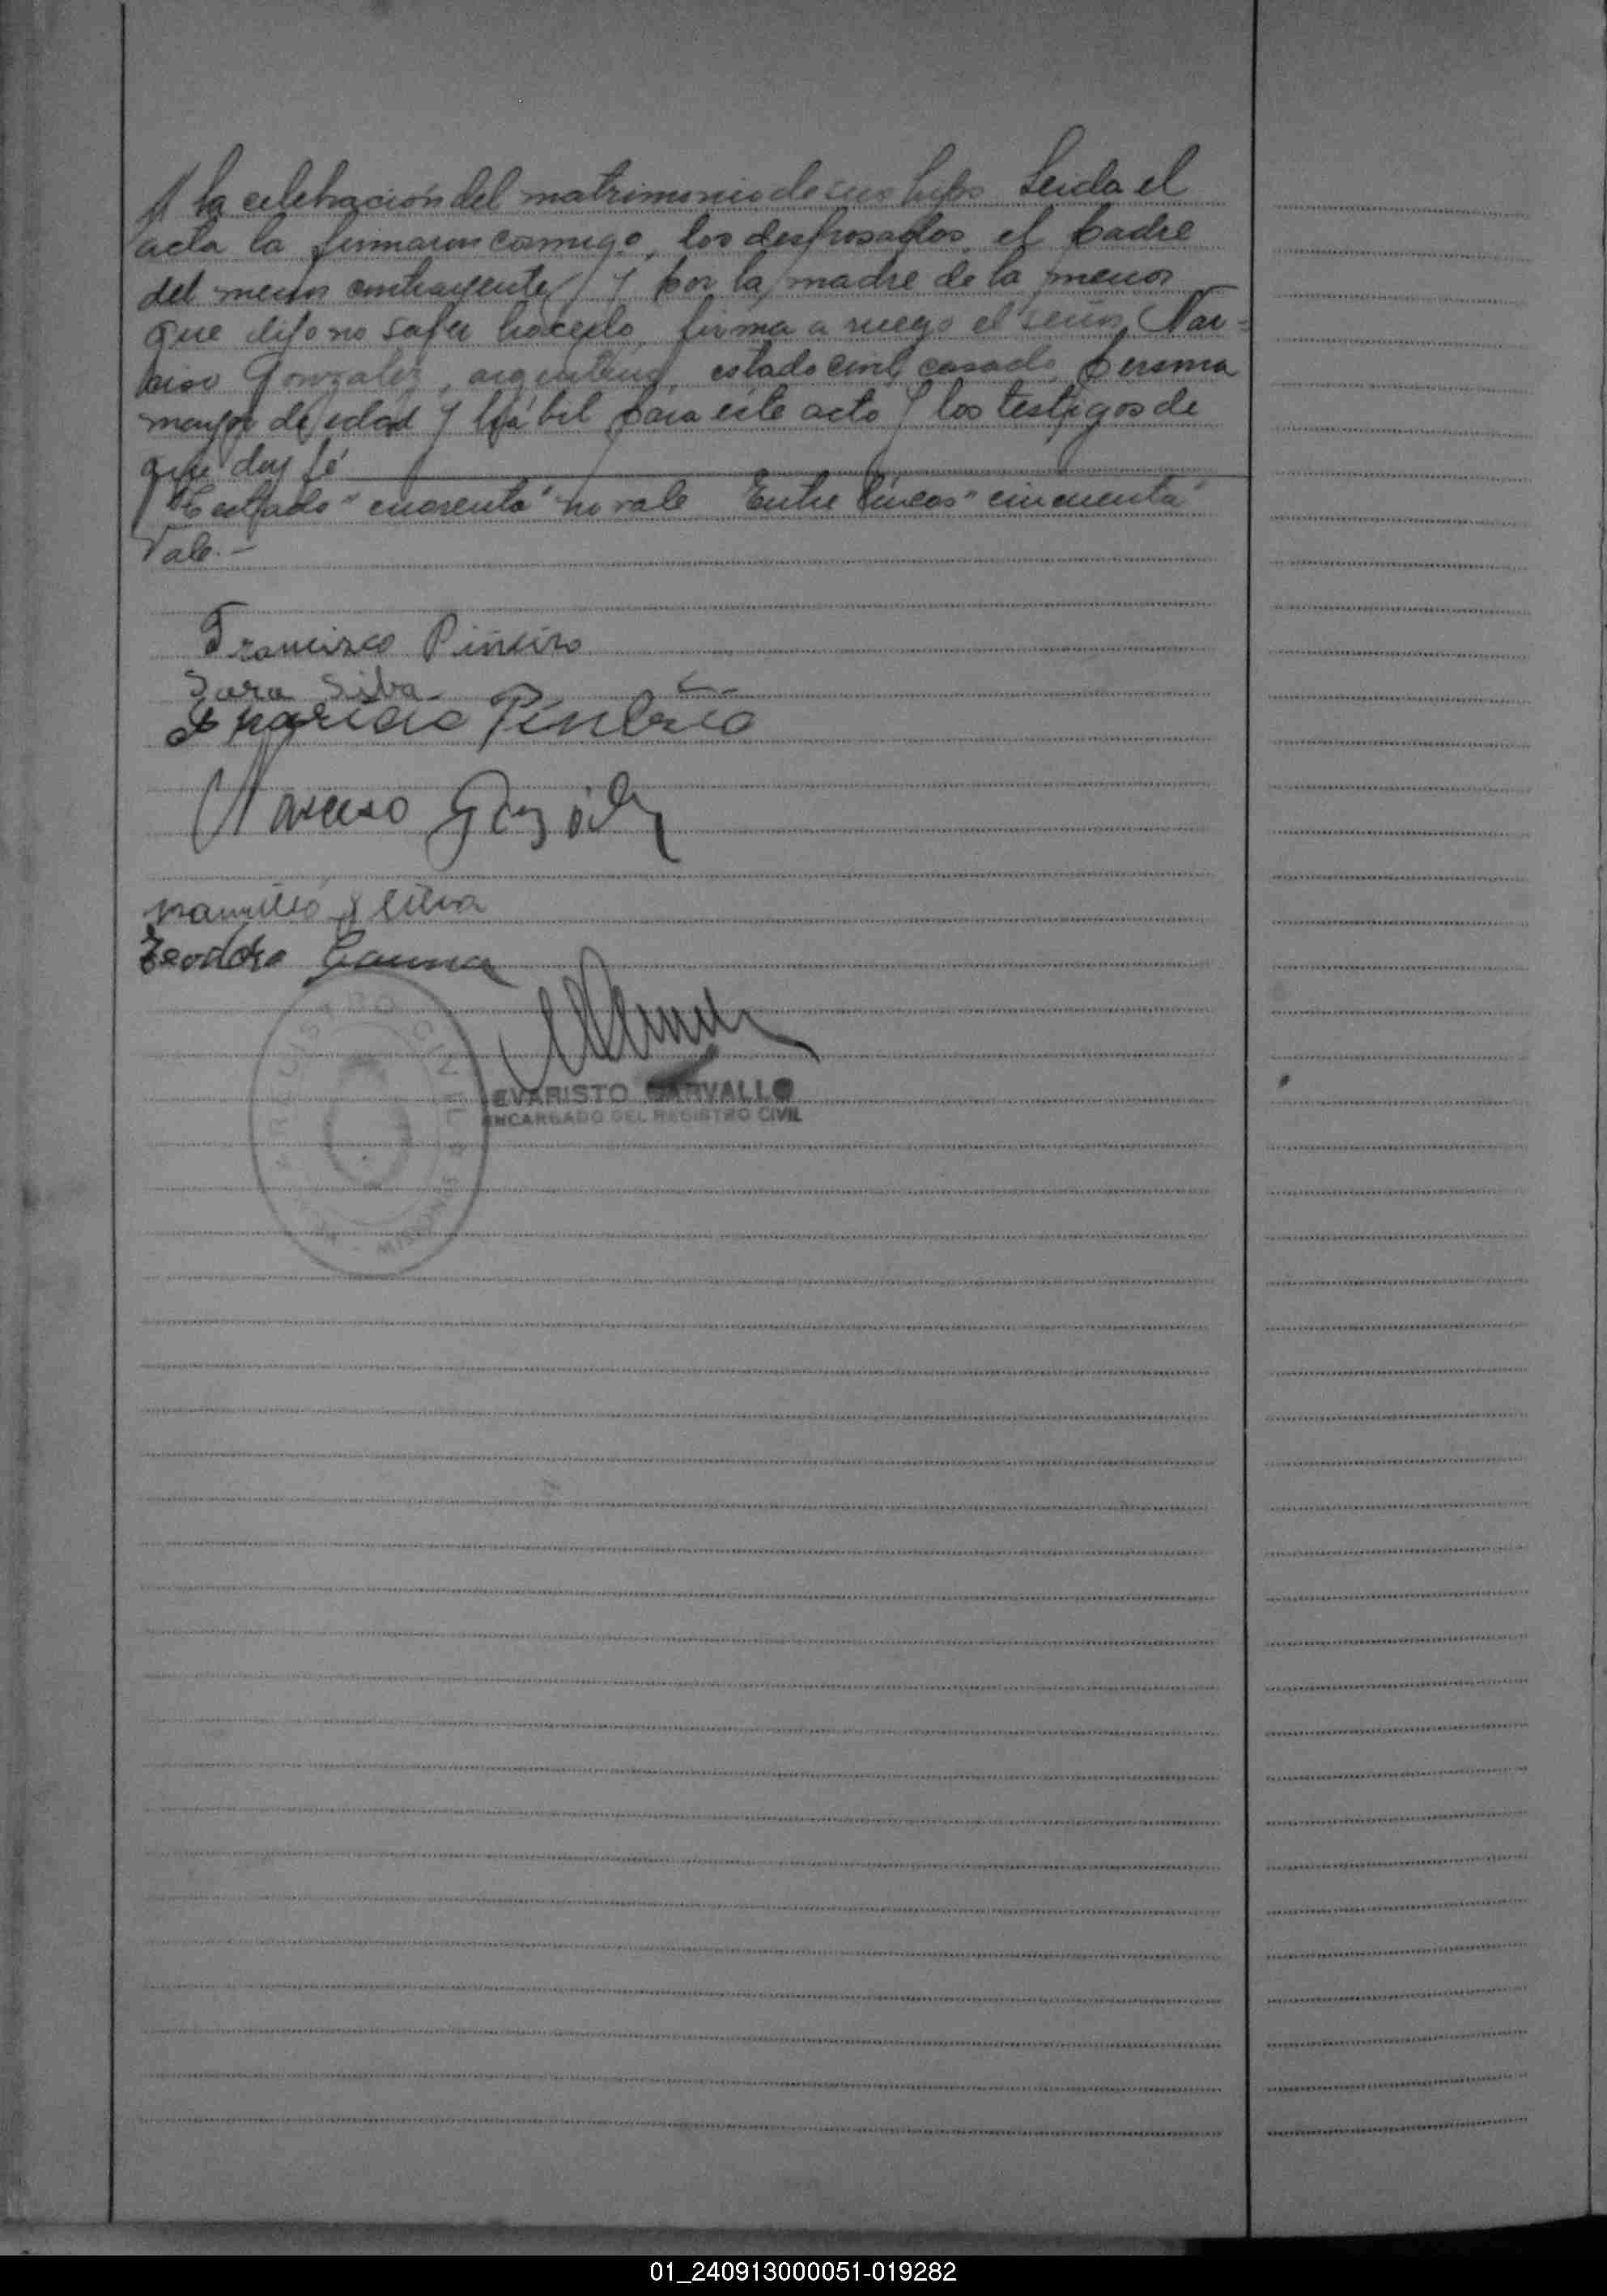 // la celebración del matrimonio de sus hijos Leida el
acta la firmaron conmigo, los desposados, el padre
del menor contrayente y por la madre de la menor
que dijo no saber hacerlo, firma a ruego el señor Nar=
ciso Gonzalez, argentino, estado civil casado, persona
mayor de edad y hábil para este acto y los testigos de
que doy fé
Testado "cuarenta" no vale Entre líneas "cincuenta"
Vale.—
Francisco Piñeiro
Sara Silva
Aparicio Piñeiro
Narciso
Silva
Teodoro Gauna
REGISTRO CIVIL
MISIONES
EVARISTO CARVALLO
ENCARGADO DEL REGISTRO CIVIL
01_240913000051-019282